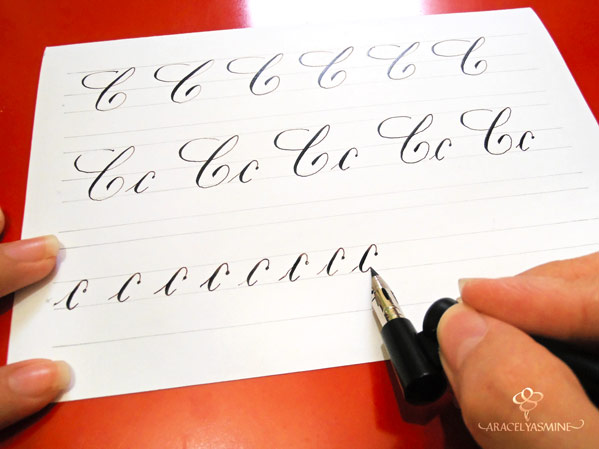 C C C C C C
Cc Cc Cc Cc Cc
c c c c c c c c
ARACELYASMINE